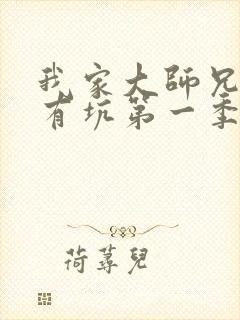 我家大師兄
有坑第一季
荷蓴兒